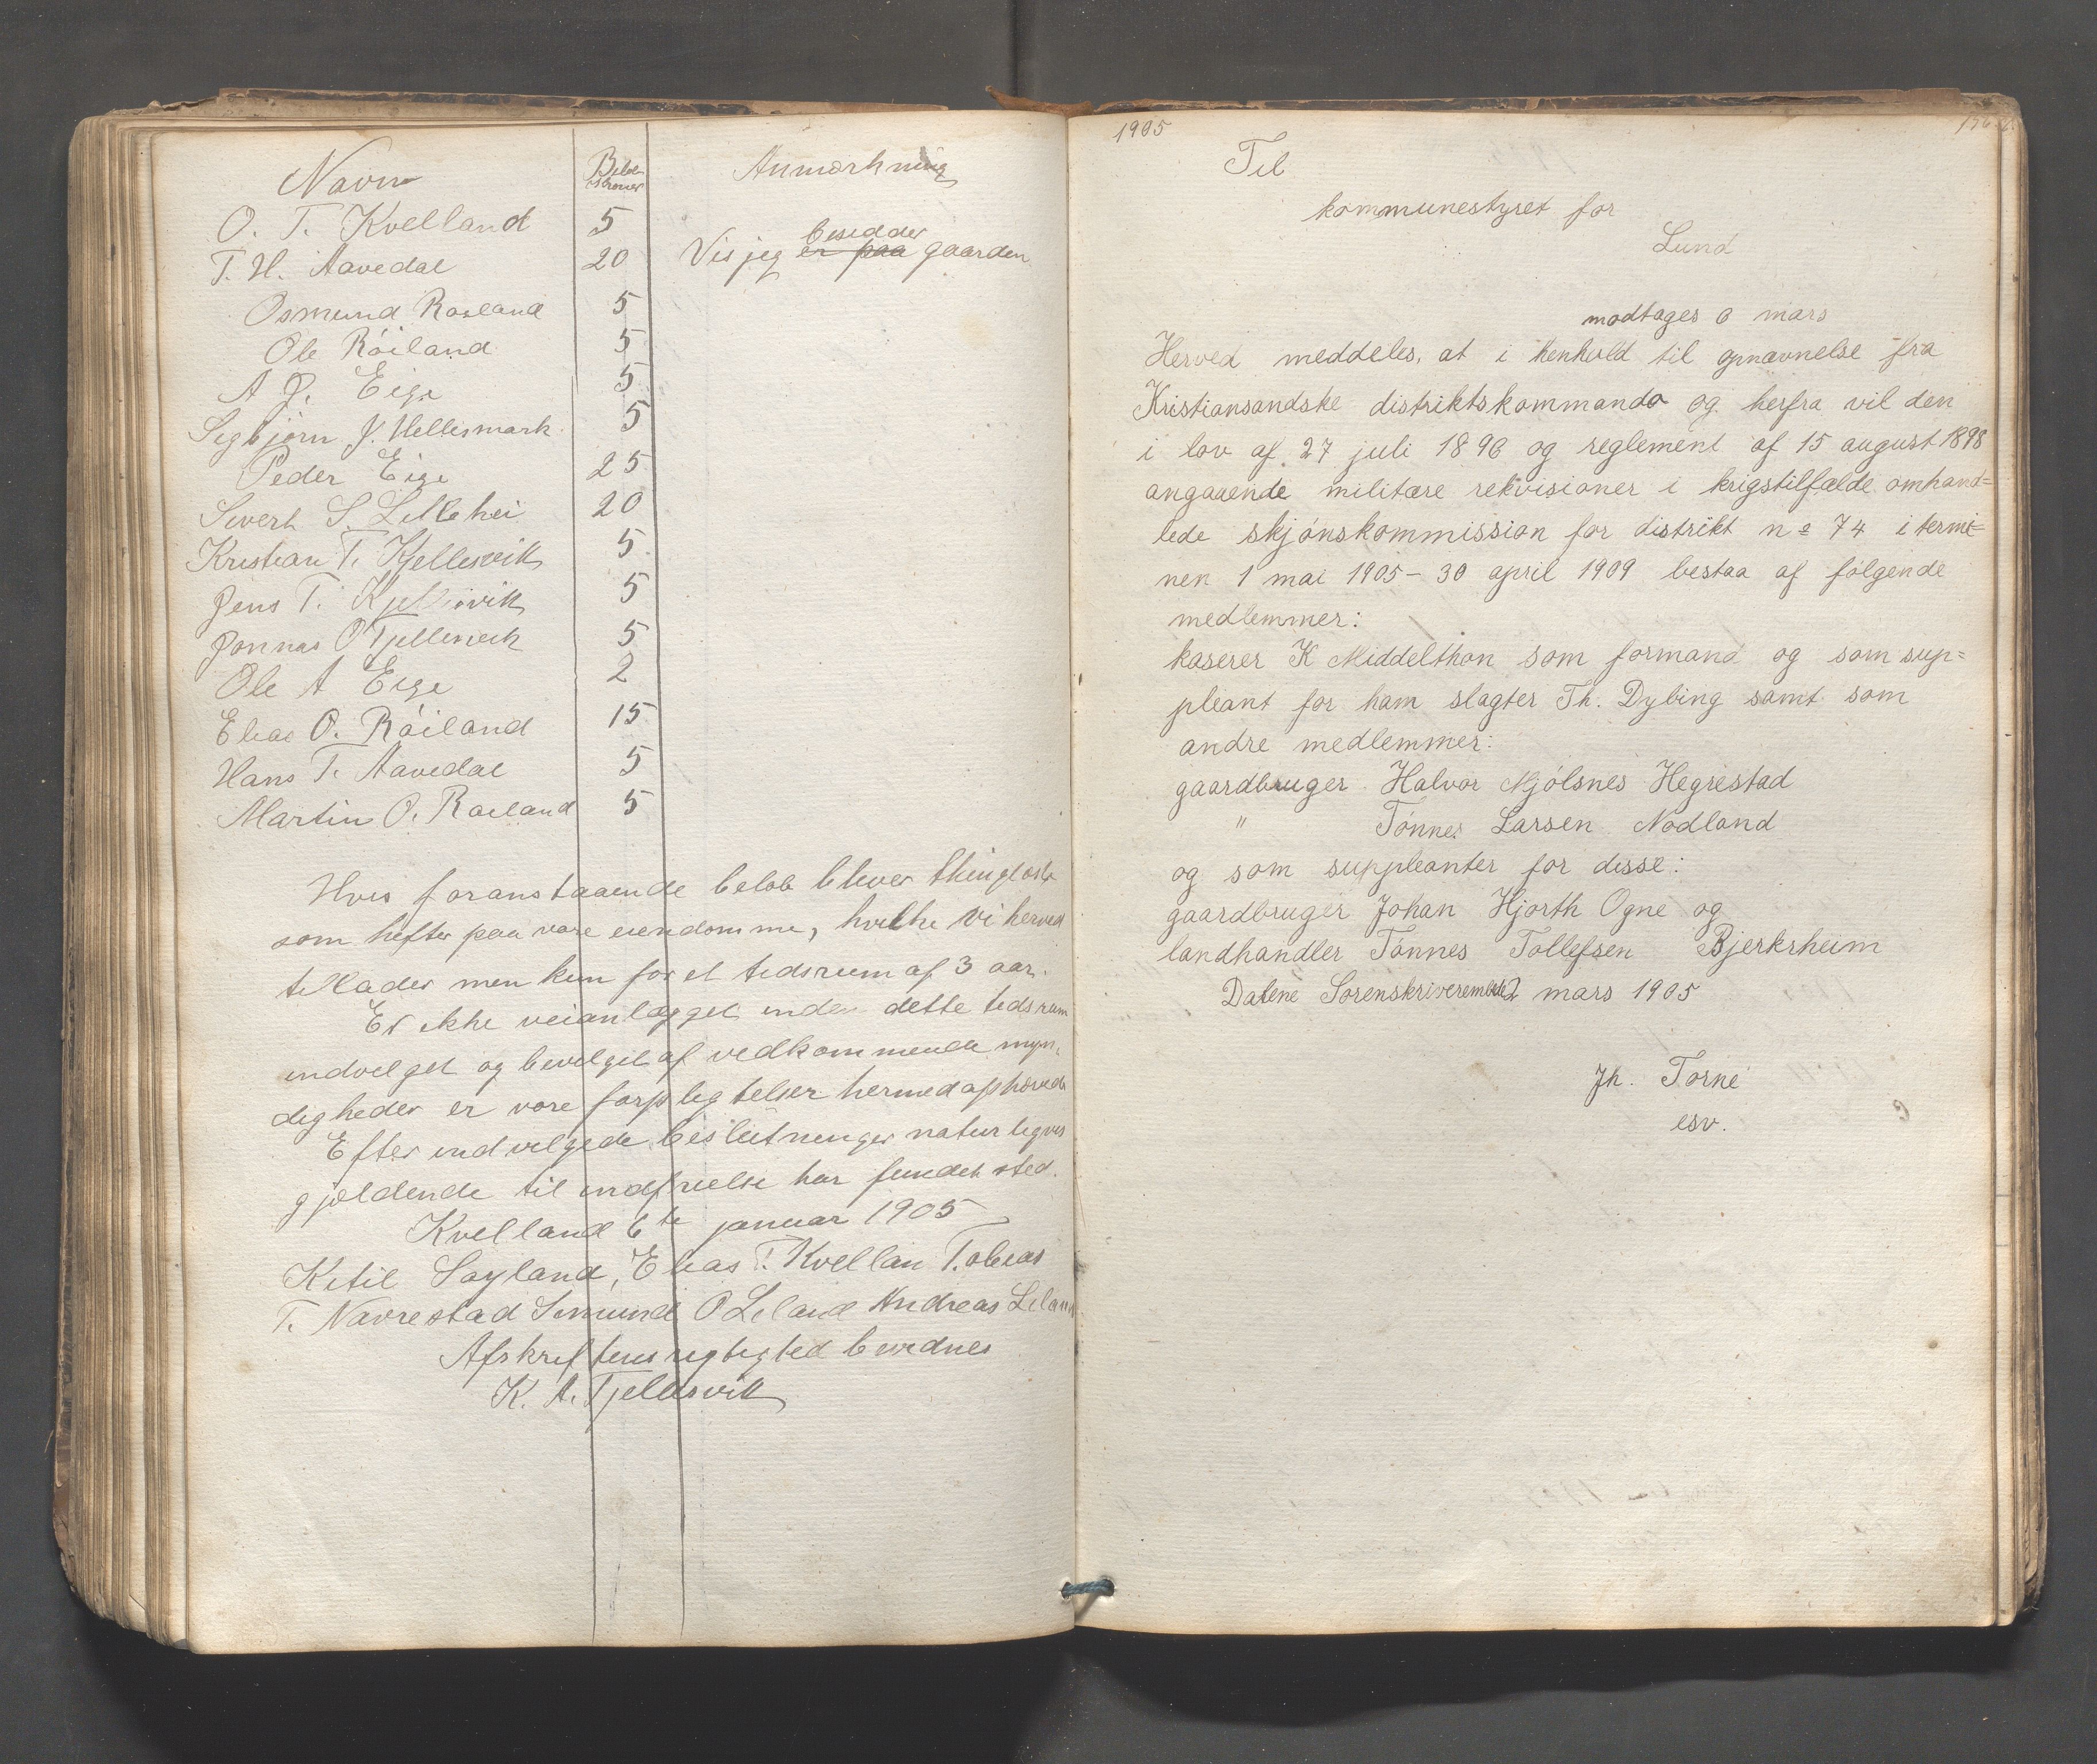 Navn Beløb kroner Anmærkning
O. T. Kvelland 5
T. H. Aavedal 20 Vis jeg besidder er paa gaarden
Osmund Røiland 5
Ole Róiland 5
A J. Eige 5
Segbjørn J. Hellesmark 5
Peder Eige 25
Sivert S. Lillehei 20
Kristian T. Kjellesvik 5
Jens T. Kjellesvik 5
Jonnas O Tjellesvik 5
Ole A Eige 2
Elias O. Róiland 15
Hans T. Aavedal 5
Martin O. Røiland 5
Hvis foranstaaende beløb bliver thinglæste
som hefter paa vore eiendomme, hvilke vi herved
tillader men kun for et tidsrum af 3 aar.
Er ikke veianlægget inden dette tidsrum
indvilget og bevilget af vedkommende myn,
digheder er vore forpligtelser hermed ophævede
Efter indvilgede beslutninger naturligvis
gjældende til indfrielse har fundet sted.
Kvelland 6te januar 1905
Ketil Søyland, Elias T. Kvellan Tobias
T. Navrestad Semund O Leland Andreas Leland
Afskriftens rigtighed bevidnes
K. A. Tjellesvik
1905
Til
kommunestyret for
Lund
modtages 6 mars
Herved meddeles, at i henhold til opnævnelse fra
Kristiansandske distriktskommando og herfra vil den
i lov af 27 juli 1896 og reglement af 15 august 1898
angaaende militære rekvisioner i krigstilfælde omhand=
lede skjónskommission for distrikt no 74 i termi=
nen 1 mai 1905 - 30 april 1909 bestaa af følgende
medlemmer:
kaserer K Middelthon som formand og som sup=
pleant for ham slagter Th. Dybing samt som
andre medlemmer:
gaardbruger Halvor Mjólsnes Hegrestad
" Tónnes Larsen Nodland
og som suppleanter for disse:
gaardbruger Johan Hjorth Ogne og
landhandler Tónnes Tollefsen Bjerkrheim
Datene Sorenskriverembede 2 mars 1905
Jh. Torne
esv.